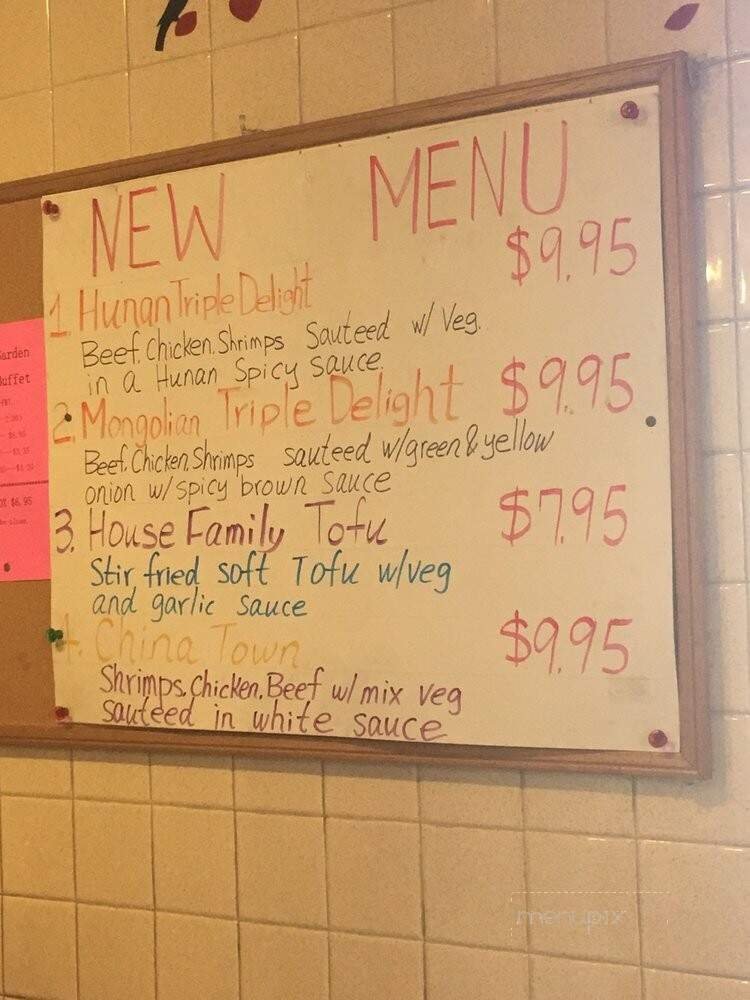 NEW MENU
1. Hunan Triple Delight $9.95
Beef, Chicken, Shrimps Sauteed w/ Veg.
in a Hunan Spicy sauce.
2. Mongolian Triple Delight $9.95
Beef, Chicken, Shrimps sauteed w/green & yellow
onion w/ spicy brown sauce
3. House Family Tofu $7.95
Stir fried soft Tofu w/veg
and garlic sauce
4. China Town $9.95
Shrimps, Chicken, Beef w/ mix veg
sauteed in white sauce
arden
uffet
$6.95
menupix